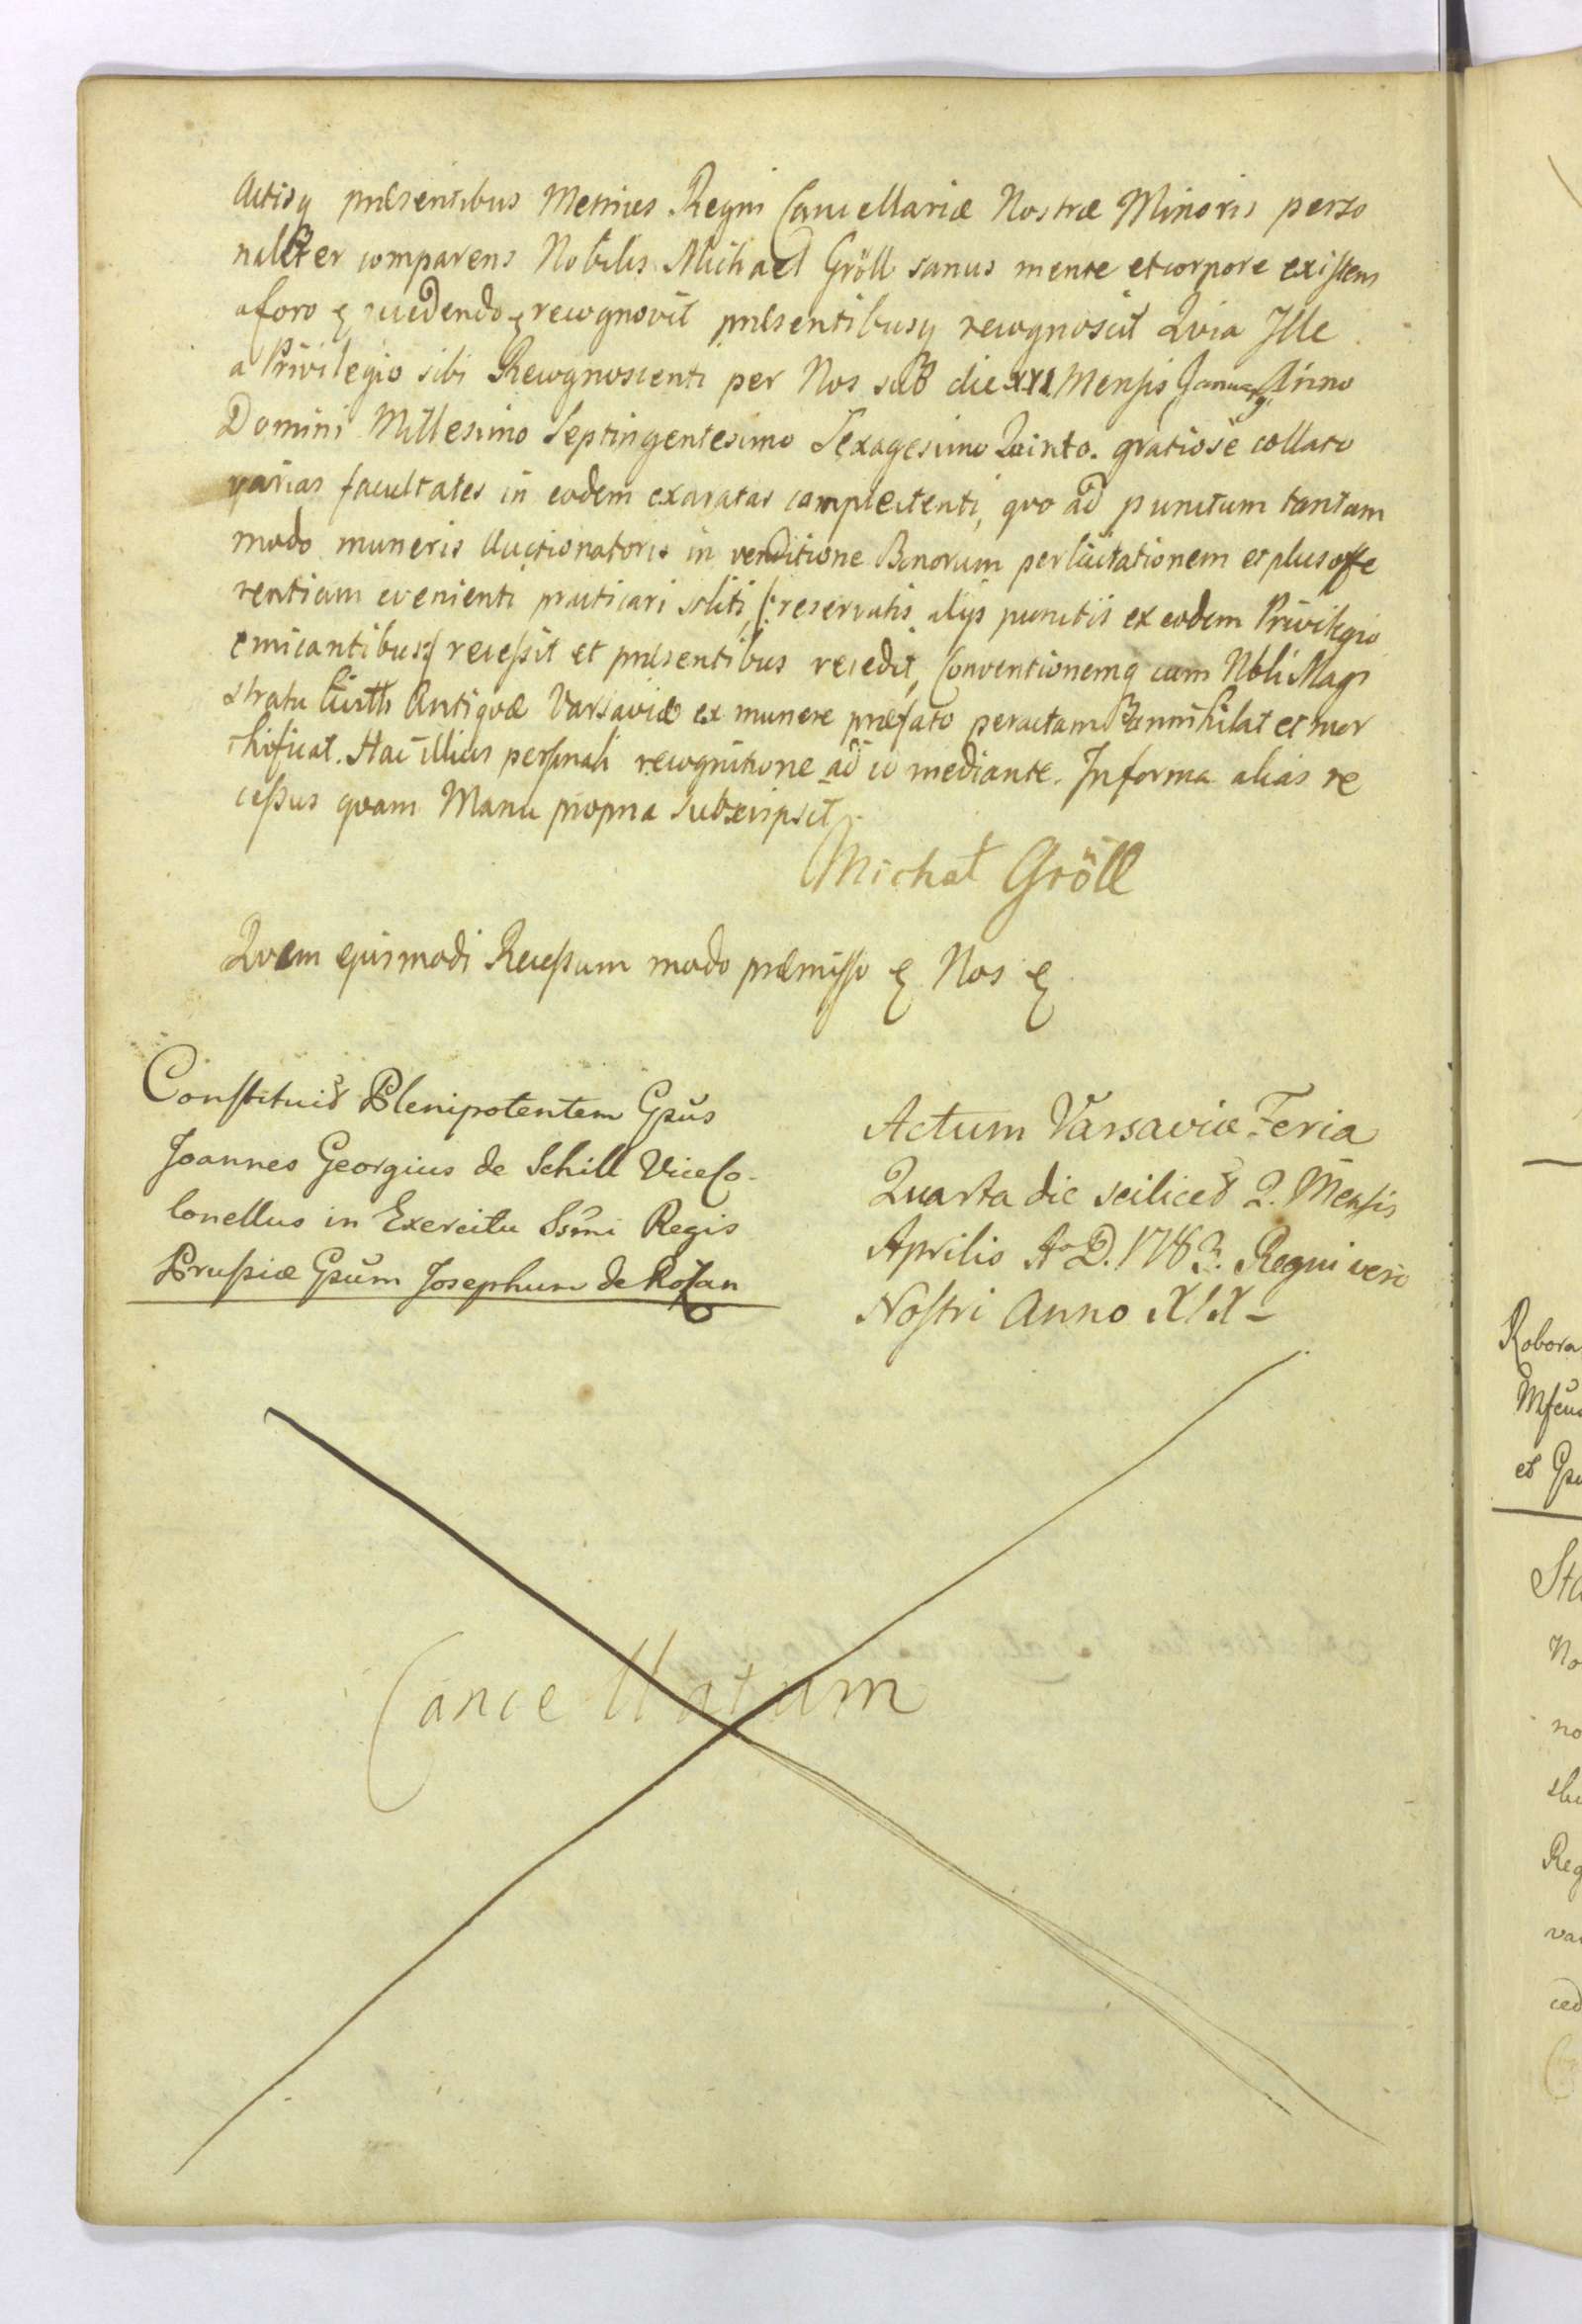 Actisq præsentibus Metrices Regni Cancellariæ Nostræ Minoris perso
naliter comparens Nobilis Michael Gröll sanus mente et corpore existens
a foro & recedendo & recognovit præsentibusq recognoscit Qvia Ille
a Privilegio sibi Recognoscenti per Nos sub die XXI Mensis Januarij Anno
Domini Millesimo Septingentesimo Sexagesimo Quinto. gratiose collato
varias facultates in eodem exaratas complectenti, qvo ad punctum tantum
modo muneris Auctionatoris in venditione Bonorum per licitationem et plus offe
rentiam evenienti practicari soliti, /: reservatis alijs punctis ex eodem Privilegio
emicantibus :/ recessit et præsentibus recedit, Conventionemq cum Nobli Magi
stratu Cittis Antiqvæ Varsaviæ ex munere præfato peractam annihilat et mor
tificat. Hac illius personali recognitione ad id mediante. In forma alias re
cessus qvam Manu propria subscripsit.
Michał Gröll
Qvem ejusmodi Recessum modo præmisso & Nos &
Constituit Plenipotentem Gsus
Joannes Georgius de Schill Vice Co-
lonellus in Exercitu Ssmi Regis
Prussiæ Gsum Josephum de Rożan
Actum Varsaviæ Feria
Quarta die scilicet 2. Mensis
Aprilis Ao D. 1783. Regni vero
Nostri Anno XIX-
Cancellatum
Robora
et Gsu
Sta
No
no
Reg
va
ced